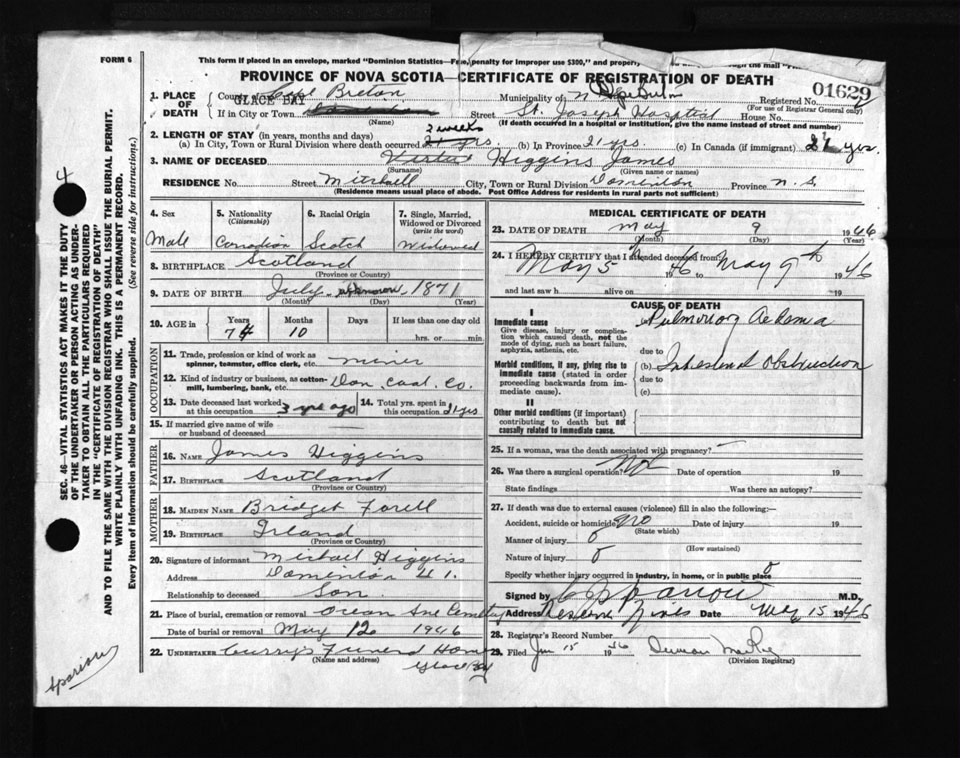 FORM 6
This form if placed in an envelope, marked "Dominion Statistics—Free, penalty for improper use $300," and
PROVINCE OF NOVA SCOTIA—CERTIFICATE OF REGISTRATION OF DEATH
01629
1. PLACE OF DEATH
County of Cape Breton Municipality of Registered No.
(For use of Registrar General only)
If in City or Town GLACE BAY Street St. Joseph Hospital House No.
(Name) (If death occurred in a hospital or institution, give the name instead of street and number)
2. LENGTH OF STAY (in years, months and days)
(a) In City, Town or Rural Division where death occurred 3 weeks (b) In Province 21 yrs. (c) In Canada (if immigrant) yrs.
3. NAME OF DECEASED Higgins James
(Surname) (Given name or names)
RESIDENCE No. Street Mitchell City, Town or Rural Division Dominion Province N.S.
(Residence means usual place of abode. Post Office Address for residents in rural parts not sufficient)
4. Sex
Male
5. Nationality
(Citizenship)
Canadian
6. Racial Origin
Scotch
7. Single, Married, Widowed or Divorced
(write the word)
Widowed
8. BIRTHPLACE Scotland
(Province or Country)
9. DATE OF BIRTH July unknown 1871
(Month) (Day) (Year)
10. AGE in
Years Months Days If less than one day old
74 10 hrs. or min.
OCCUPATION
11. Trade, profession or kind of work as
spinner, teamster, office clerk, etc. miner
12. Kind of industry or business, as cotton-
mill, lumbering, bank, etc. Dom. Coal Co.
13. Date deceased last worked
at this occupation 3 yrs ago
14. Total yrs. spent in
this occupation 21 yrs
15. If married give name of wife
or husband of deceased
FATHER
16. NAME James Higgins
17. BIRTHPLACE Scotland
(Province or Country)
MOTHER
18. MAIDEN NAME Bridget
19. BIRTHPLACE Irland
(Province or Country)
20. Signature of informant Michael Higgins
Address Dominion
Relationship to deceased Son
21. Place of burial, cremation or removal Ocean Ave Cemetery
Date of burial or removal May 12 1946
22. UNDERTAKER Curry's Funeral Home
(Name and address)
Glace Bay
MEDICAL CERTIFICATE OF DEATH
23. DATE OF DEATH May 9 1946
(Month) (Day) (Year)
24. I HEREBY CERTIFY that I attended deceased from
May 5 46 to May 9th 1946
and last saw h alive on 19
CAUSE OF DEATH
I
Immediate cause
Give disease, injury or complication which caused death, not the mode of dying, such as heart failure, asphyxia, asthenia, etc.
Pulmonary Aedema
due to
Morbid conditions, if any, giving rise to immediate cause (stated in order proceeding backwards from immediate cause).
(b) Intestinal Obstruction
due to
(c)
II
Other morbid conditions (if important) contributing to death but not causally related to immediate cause.
25. If a woman, was the death associated with pregnancy?
26. Was there a surgical operation? No Date of operation 19
State findings Was there an autopsy?
27. If death was due to external causes (violence) fill in also the following:—
Accident, suicide or homicide? no Date of injury 19
(State which)
Manner of injury
(How sustained)
Nature of injury
Specify whether injury occurred in industry, in home, or in public place
Signed by M.D.
Address Reserve Mines Date May 15 1946
28. Registrar's Record Number
29. Filed Jun 15 1946
(Division Registrar)
SEC. 46—VITAL STATISTICS ACT MAKES IT THE DUTY
OF THE UNDERTAKER OR PERSON ACTING AS UNDER-
TAKER TO OBTAIN ALL THE PARTICULARS REQUIRED
IN THE "CERTIFICATE OF REGISTRATION OF DEATH"
AND TO FILE THE SAME WITH THE DIVISION REGISTRAR WHO SHALL ISSUE THE BURIAL PERMIT.
WRITE PLAINLY WITH UNFADING INK. THIS IS A PERMANENT RECORD.
Every item of information should be carefully supplied. (See reverse side for instructions.)
4